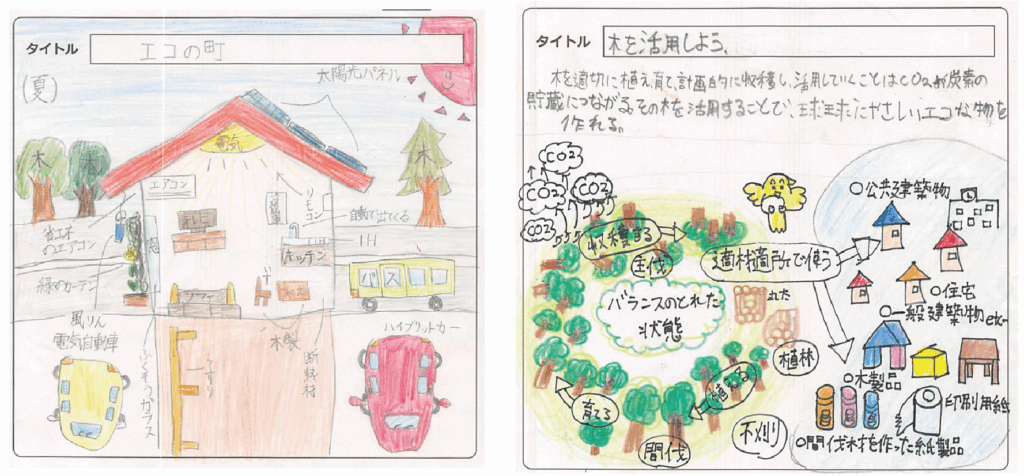 タイトル
エコの町
(夏)
太陽光パネル
電気
木
木
木
エアコン
リモコン
自動で出てくる
省エネ
のエアコン
IH
キッチン
緑のカーテン
バス
ソファー
いす
風りん
電気自動車
木製
ハイブリットカー
ふくそうガラス
断熱材
タイトル
木を活用しよう。
木を適切に植え、育て、計画的に収穫し、活用していくことはCO2や炭素の
貯蔵につながる。その木を活用することで、球球にやさしいエコな物を
作れる。
CO2
CO2
CO2
CO2
収穫する
主伐
適材適所で使う
○公共建築物
バランスのとれた
状態
○住宅
○一般建築物etc
植林
植える
育てる
間伐
○木製品
印刷用紙
○間伐材を作った紙製品